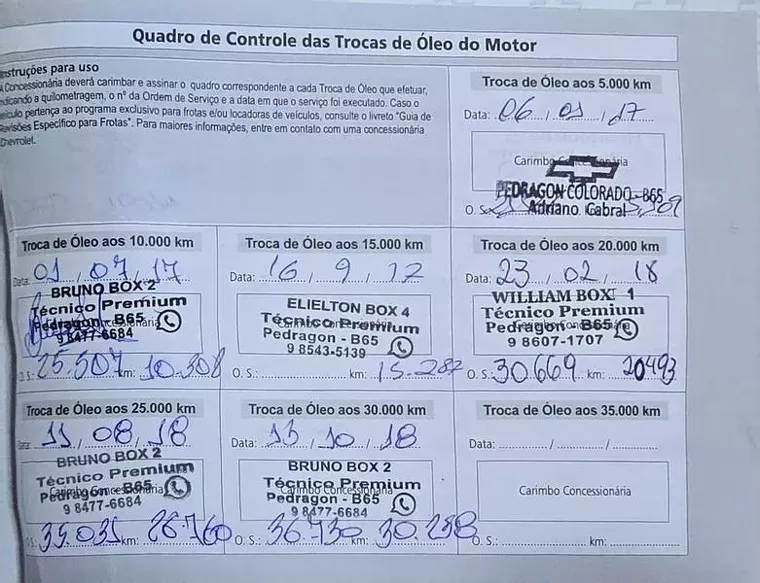 Quadro de Controle das Trocas de Óleo do Motor
Instruções para uso
A Concessionária deverá carimbar e assinar o quadro correspondente a cada Troca de Óleo que efetuar,
indicando a quilometragem, o nº da Ordem de Serviço e a data em que o serviço foi executado. Caso o
veículo pertença ao programa exclusivo para frotas e/ou locadoras de veículos, consulte o livreto "Guia de
Revisões Específico para Frotas". Para maiores informações, entre em contato com uma concessionária
Chevrolet.
Troca de Óleo aos 5.000 km
Data: 06 / 01 / 17
Carimbo Concessionária
PEDRAGON COLORADO - B65
Adriano Cabral
O. S.:
Troca de Óleo aos 10.000 km
Data: 01 / 07 / 17
BRUNO BOX 2
Técnico Premium
Pedragon - B65
9 8477-6684
O. S.: 25.507 km: 10.308
Troca de Óleo aos 15.000 km
Data: 16 / 9 / 17
ELIELTON BOX 4
Técnico Premium
Carimbo Concessionária
Pedragon - B65
9 8543-5139
O. S.: km: 15.287
Troca de Óleo aos 20.000 km
Data: 23 / 02 / 18
WILLIAM BOX 1
Técnico Premium
Pedragon - B65
9 8607-1707
O. S.: 30669 km: 20493
Troca de Óleo aos 25.000 km
Data: 11 / 08 / 18
BRUNO BOX 2
Técnico Premium
Pedragon - B65
Carimbo Concessionária
9 8477-6684
O. S.: 35.031 km: 26.760
Troca de Óleo aos 30.000 km
Data: 13 / 10 / 18
BRUNO BOX 2
Técnico Premium
Carimbo Concessionária
Pedragon - B65
9 8477-6684
O. S.: 36.730 km: 30.258
Troca de Óleo aos 35.000 km
Data: / /
Carimbo Concessionária
O. S.: km: